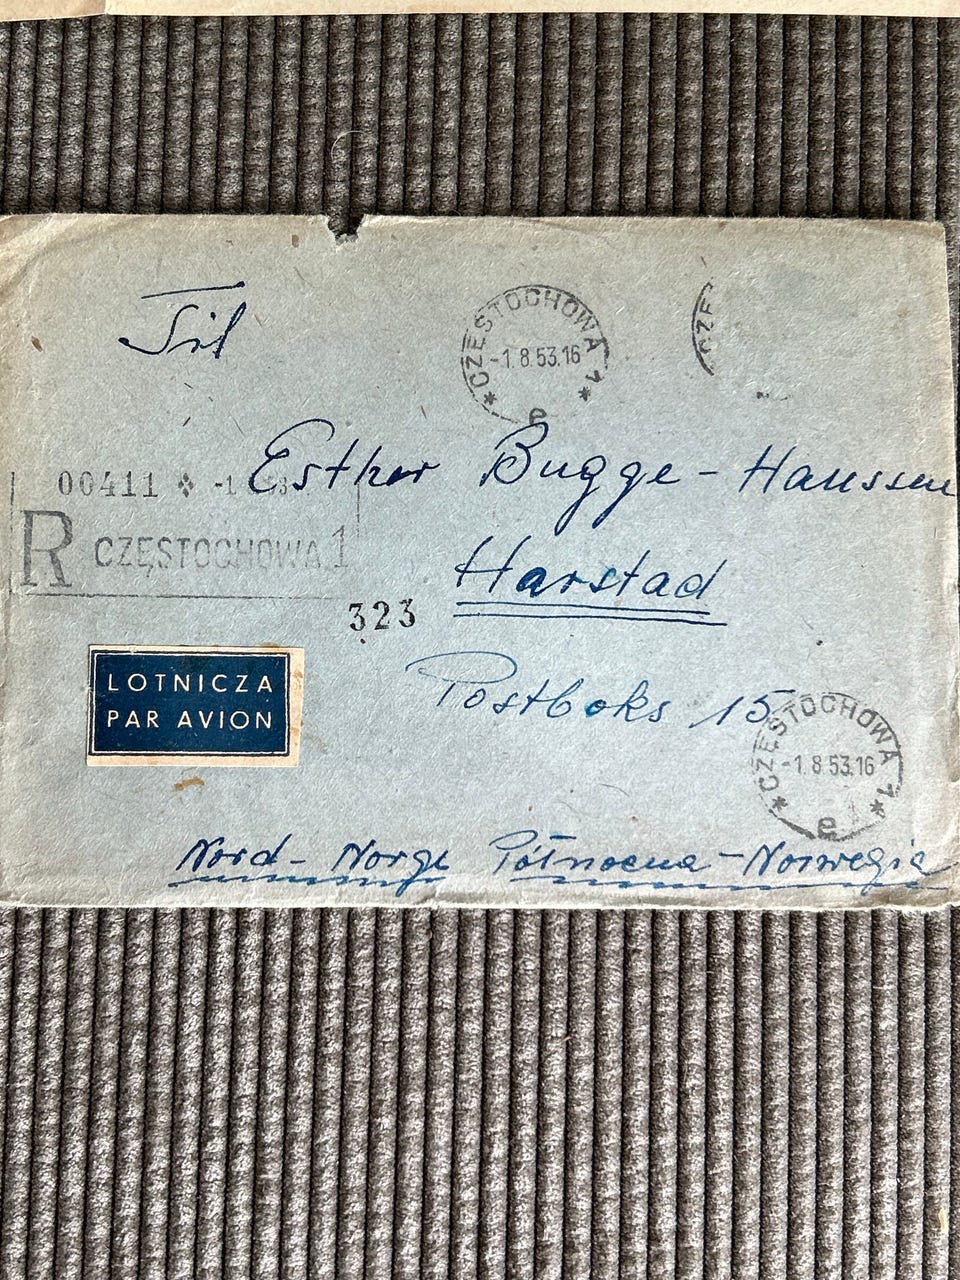 Til
CZĘSTOCHOWA 1
-1.8.53.16
e
CZĘ
Esther Bugge-Hanssen
00411 -1
R CZĘSTOCHOWA 1
Harstad
323
LOTNICZA
PAR AVION
Postboks 15
CZĘSTOCHOWA 1
-1.8.53.16
e
Nord-Norge Północna-Norwegia